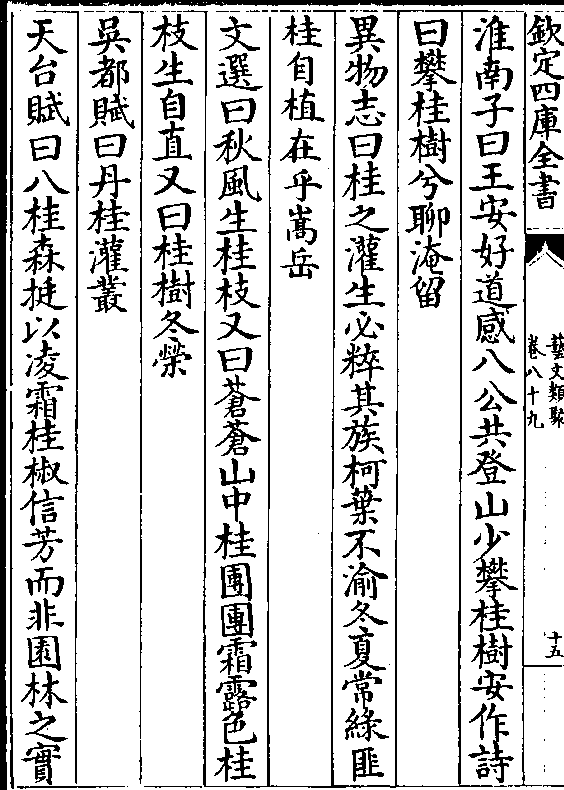 欽定四庫全書
藝文類聚
卷八十九
十五
淮南子曰王安好道感八公共登山少攀桂樹安作詩
曰攀桂樹兮聊淹留
異物志曰桂之灌生必粹其族柯葉不渝冬夏常綠匪
桂自植在乎嵩岳
文選曰秋風生桂枝又曰蒼蒼山中桂團團霜露色桂
枝生自直又曰桂樹冬榮
吳都賦曰丹桂灌叢
天台賦曰八桂森挺以凌霜桂椒信芳而非園林之實